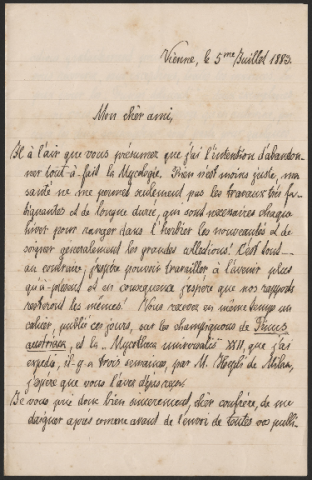 Vienne, le 5me Juillet 1883.
Mon chèr ami,
Il à l'air que vous présumez que j'ai l'intention d'abandon-
ner tout-à-fait la Mycologie. Rien n'est moins juste, ma
santé ne me permet seulement pas les travaux très fa-
tiguantes et de longue durée, qui sont nécessaires chaque
hiver pour ranger dans l'herbier les nouveautés et de
soigner generalement les grandes collections! C'est tout-
au contraire, j'espère pouvoir travailler à l'avenir plus
qu'à-présent et en consequence j'espère que nos rapports
resteront les mêmes! Vous recevez en même temps un
cahier, publié ces jours, sur les champignons de Pinus
austriaca, et la Mycotheca universalis XXII, que j'ai
expedié, il-y-a trois semaines, par M. Hoepli de Milan,
j'espère que vous l'avez déjà reçu.
Je vous prie donc bien sincerement, chèr confrère, de me
daigner après comme avant de l'envoi de toutes vos publi-